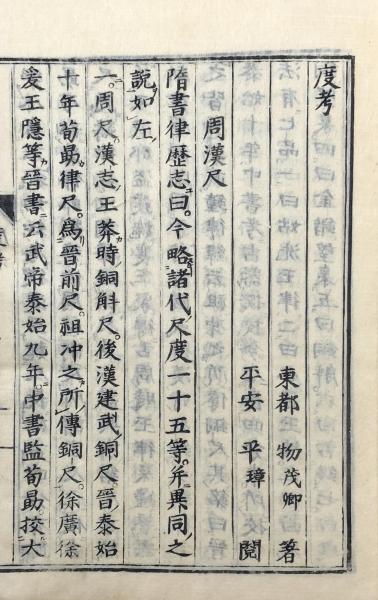 度考
東都 物茂卿 著
平安 平璋 閲
周漢尺
隋書律歷志曰今略諸代尺度一十五等并異同之
說如左
一周尺漢志王莽時銅斛尺後漢建武銅尺晉泰始
十年荀勗律尺爲晉前尺祖沖之所傳銅尺徐廣徐
爰王隱等晉書云武帝泰始九年中書監荀勗挍大